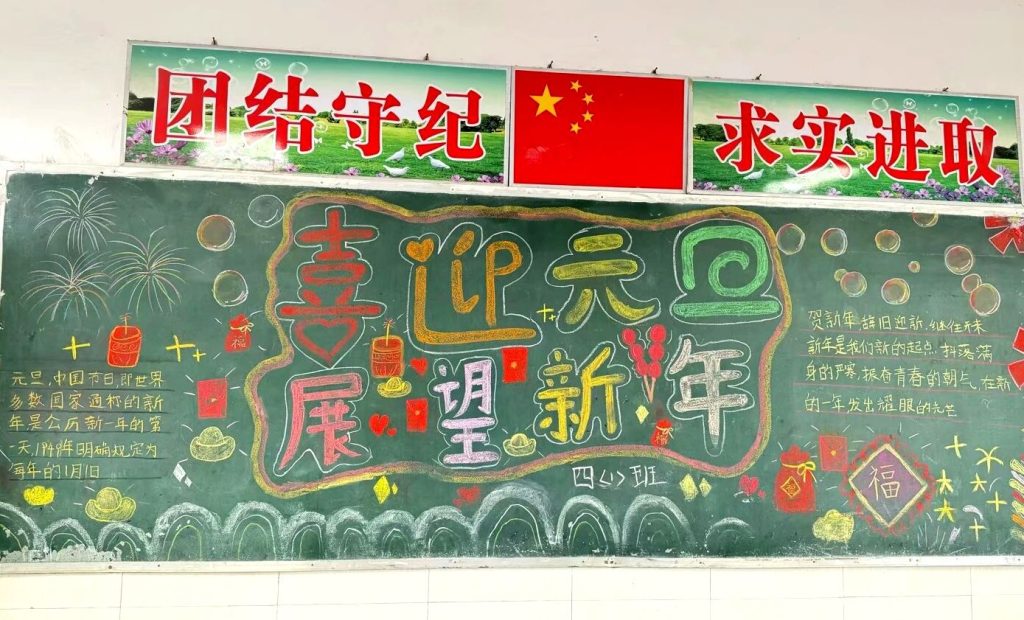 团结守纪
求实进取
喜迎元旦
展望新年
四<1>班
元旦,中国节日即世界
多数国家通称的新
年是公历新一年的第
一天1949年明确规定为
每年的1月1日
福
贺新年,辞旧迎新,继往开来
新年是我们新的起点.抖落满
身的严寒,青春的朝气,在新
的一年发出耀眼的光芒
福